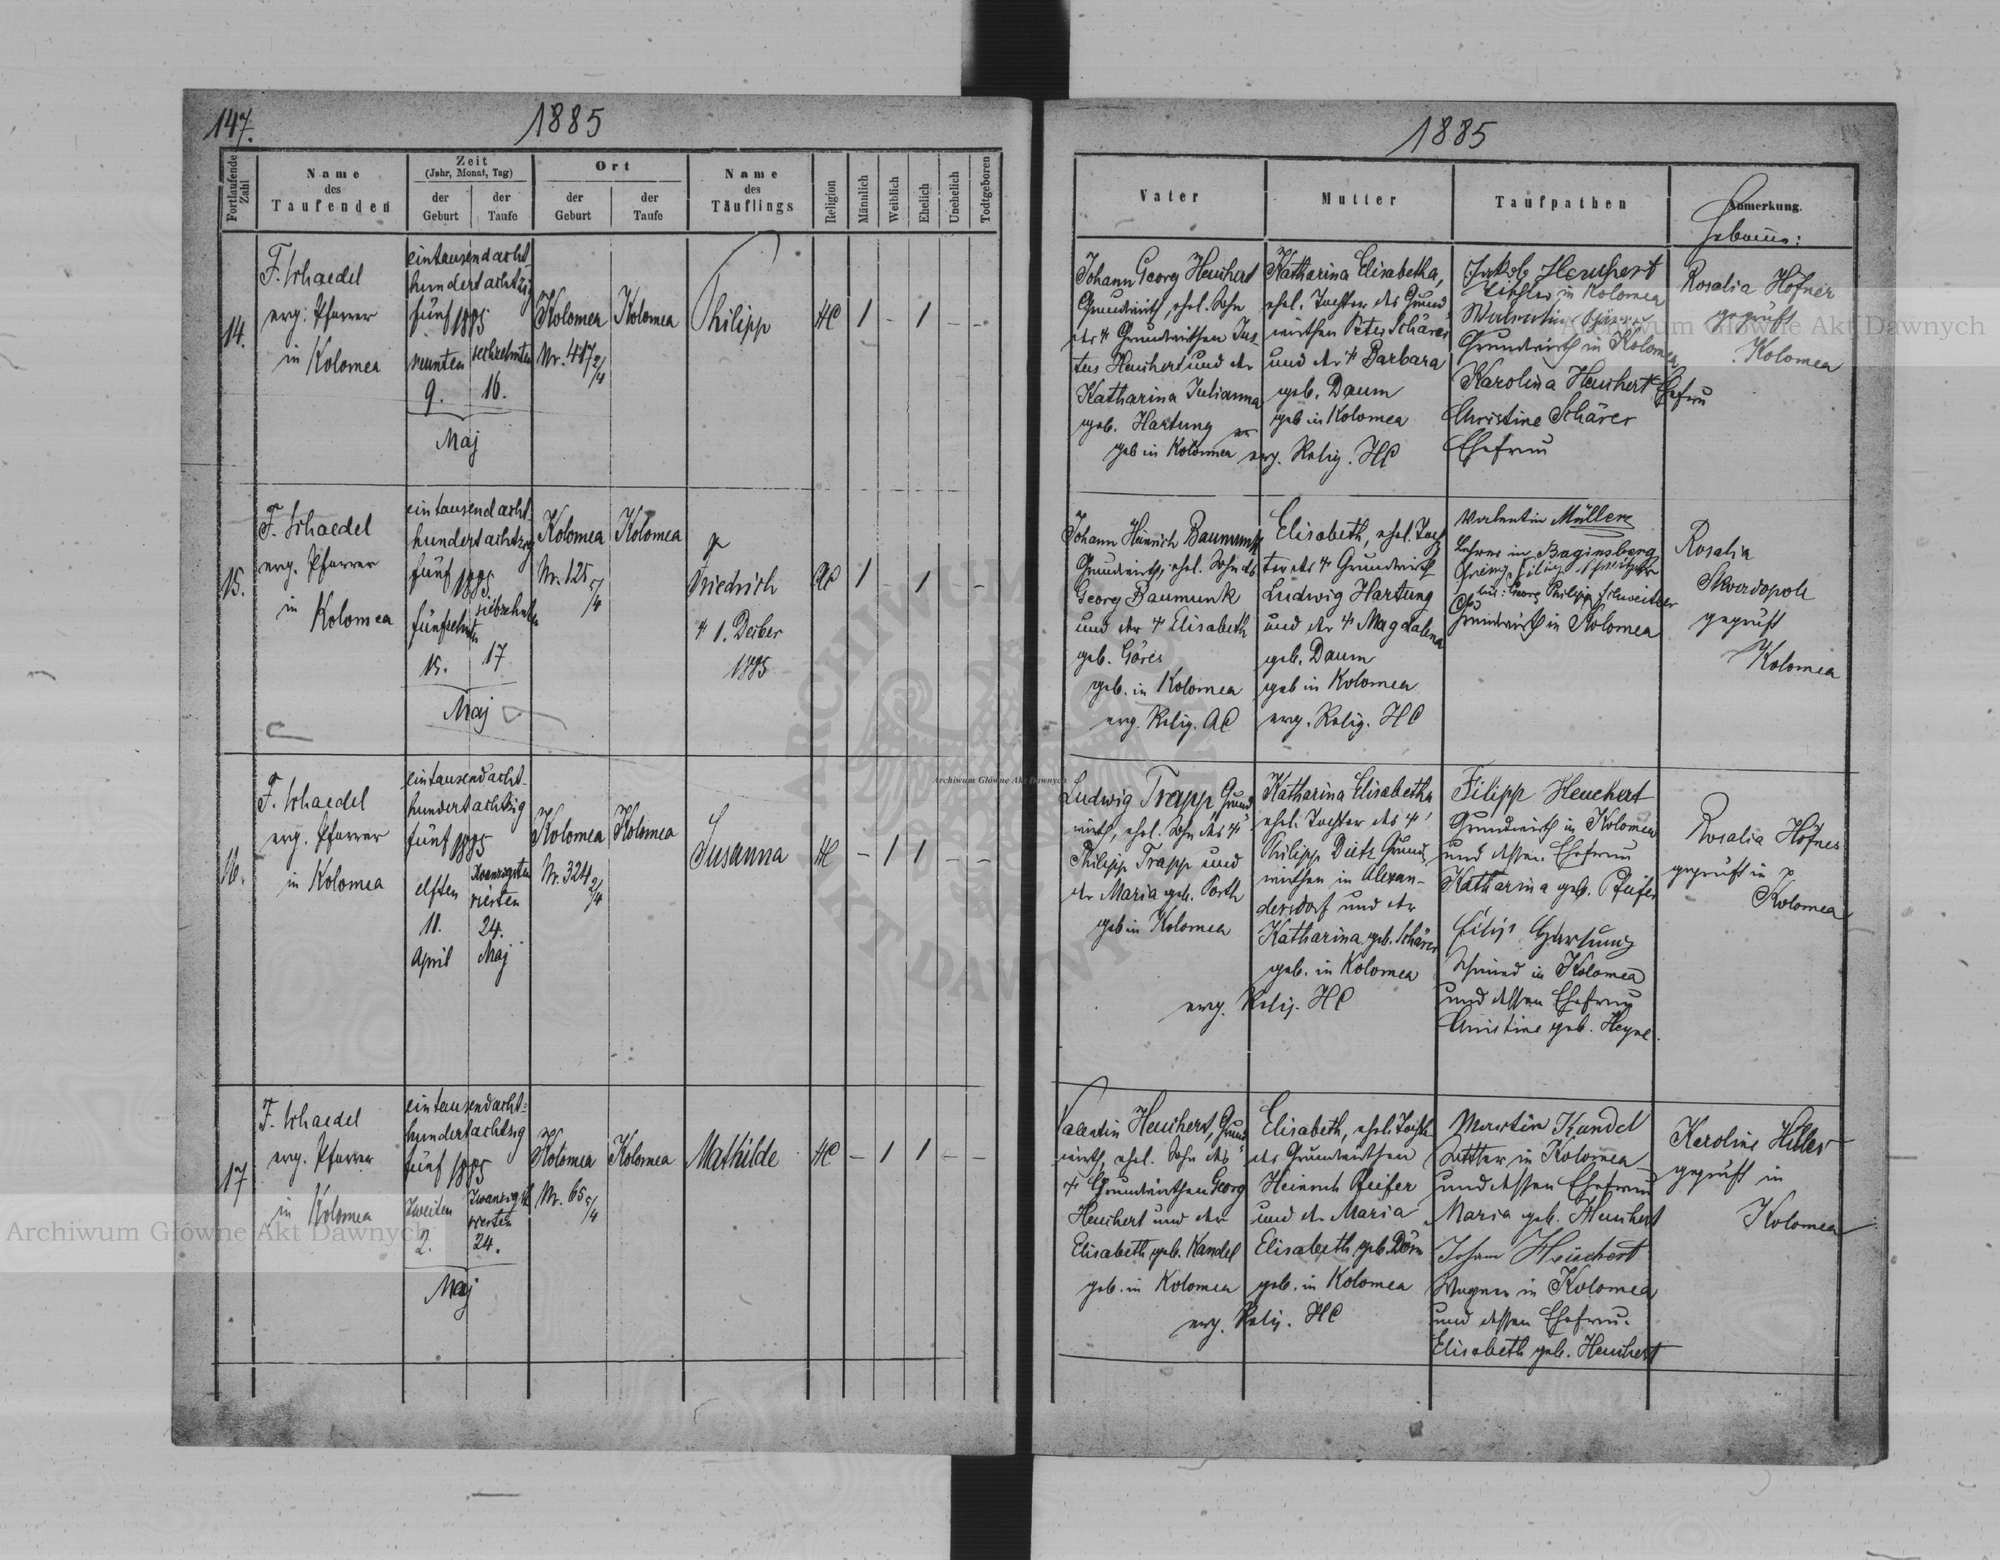 147.
1885
Fortlaufende Zahl
Name des Taufenden
Zeit
(Jahr, Monat, Tag)
der Geburt
der Taufe
Ort
der Geburt
der Taufe
Name des Täuflings
Religion
Männlich
Weiblich
Ehelich
Unehelich
Todtgeboren
14.
F. Schaedel
evg. Pfarrer
in Kolomea
eintausendacht
hundert achtzig
fünf 1885
neunten
9.
sechzehnten
16.
Maj
Kolomea
Nr. 417 2/4
Kolomea
Philipp
HC
1
-
1
-
-
15.
F. Schaedel
evg. Pfarrer
in
Kolomea
eintausendacht-
hundert achtzig
fünf 1885.
fünfzehnten
15.
siebzehnten
17
Maj
Kolomea
Nr. 125 5/4
Kolomea
Friedrich
+ 1. Dezber
1885
AC
1
-
1
-
-
16.
F. Schaedel
evg. Pfarrer
in Kolomea
eintausendacht-
hundert achtzig
fünf 1885
elften
11.
April
zwanzigsten
vierten
24.
Maj
Kolomea
Nr. 324 2/4
Kolomea
Susanna
HC
-
1
1
-
-
17
F. Schaedel
evg. Pfarrer
in Kolomea
eintausendacht-
hundert achtzig
fünf 1885
zweiten
2.
vierten
24.
Maj
Kolomea
Nr. 65 5/4
Kolomea
Mathilde
HC
-
1
1
-
-
1885
Vater
Mutter
Taufpathen
Anmerkung.
Hebamme:
Johann Georg Heuchert
Grundwirth, ehel. Sohn
des + Grundwirthen Jus-
tus Heuchert und der
Katharina Julianna
geb. Hartung
geb in Kolomea
Katharina Elisabetha,
ehel. Tochter des Grund-
wirthen Peter Schärer
und der + Barbara
geb. Daum
geb in Kolomea
evg. Relig. HC
Jakob Heuchert
Tischler in Kolomea
Grundwirth in Kolomea
Karolina Heuchert Ehefrau
Christine Schärer
Ehefrau
Rosalia Höfner
geprüft
Kolomea
Johann Heinrich Baumunk
Grundwirth, ehel. Sohn des
Georg Baumunk
und der + Elisabeth
geb. Göres
geb. in Kolomea
evg. Relig. AC
Elisabeth, ehel. Toch
ter des + Grundwirth
Ludwig Hartung
und der + Magdalena
geb. Daum
geb in Kolomea
evg. Relig. HC
Valentin Müller
Lehrer in Baginsberg
Georg Philipp Schweitzer
Grundwirth in Kolomea
Rosalia
Skwordopole
geprüft
Kolomea
Ludwig Trapp Grund
wirth, ehel. Sohn des +
Philipp Trapp und
der Maria geb. Porth
geb in Kolomea
Katharina Elisabetha
ehel. Tochter des +
Philipp Dietz Grund-
wirthen in Alexan-
dersdorf und der
Katharina geb. Schärer
geb. in Kolomea
evg. Relig. HC
Filipp Heuchert
Grundwirth in Kolomea
und dessen Ehefrau
Katharina geb. Pfeifer
Filip Hartung
Schmied in Kolomea
und dessen Ehefrau
Christine geb. Heyne.
Rosalia Höfner
geprüft in
Kolomea
Valentin Heuchert, Grund
wirth, ehel. Sohn des
+ Grundwirthen Georg
Heuchert und der
Elisabeth geb. Kandel
geb. in Kolomea
Elisabeth, ehel. Tochter
des Grundwirthen
Heinrich Pfeifer
und der Maria
Elisabeth geb. Dörn
geb. in Kolomea
evg. Relig. HC
Martin Kandel
in Kolomea
und dessen Ehefrau
Maria geb. Heuchert
Johann Heuchert
Wagner in Kolomea
und dessen Ehefrau
Elisabeth geb. Heuchert
Karoline
geprüft in
Kolomea
Archiwum Główne Akt Dawnych
Archiwum Główne Akt Dawnych
Archiwum Główne Akt Dawnych